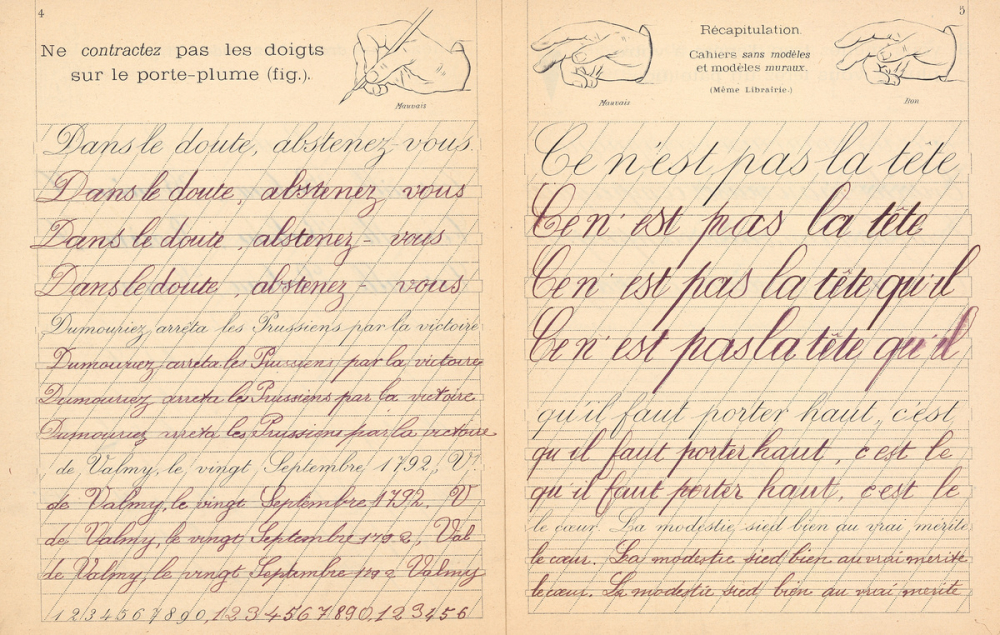 4
Ne contractez pas les doigts
sur le porte-plume (fig.).
Mauvais
Dans le doute, abstenez-vous.
Dans le doute, abstenez vous
Dans le doute, abstenez- vous
Dans le doute, abstenez- vous
Dumouriez arrêta les Prussiens par la victoire
Dumouriez arreta les Prussiens par la victoire
Dumouriez arreta les Prussiens par la victoire
Dumouriez arreta les Prussiens par la victoire
de Valmy, le vingt Septembre 1792, V.
de Valmy, le vingt Septembre 1792. V
de Valmy, le vingt Septembre 1792, Val
de Valmy, le vingt Septembre 1792 Valmy
1234567890,1234567890,123456
5
Mauvais
Récapitulation.
Cahiers sans modèles
et modèles muraux.
(Même Librairie.)
Bon
Ce n'est pas la tête
Ce n'est pas la tête
Ce n'est pas la tête qu'il
Ce n'est pas la tête qu'il
qu'il faut porter haut, c'est
qu il faut porter haut, c est le
qu'il faut porter haut, c'est le
le cœur. La modestie sied bien au vrai mérite
le cœur. La modestie sied bien au vrai merite
le cœur. La modestie sied bien au vrai merite